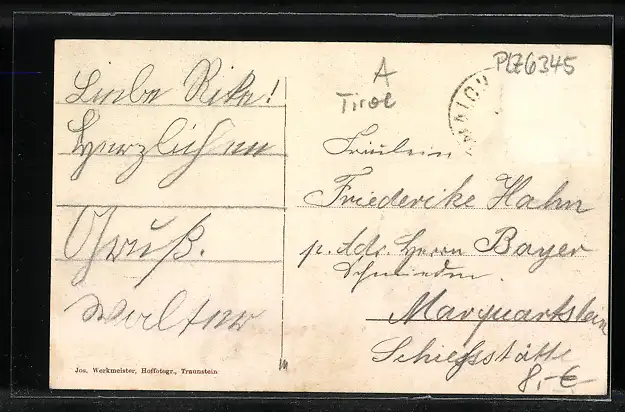 Liebe Rike!
Herzlichen
Gruß.
Walter
Jos. Werkmeister, Hoffotogr., Traunstein
A
Tirol
PLZ6345
Fräulein
Friederike Hahn
p. Adr. Herrn Bayer
Marquartstein
Schiessstätte
8,-€